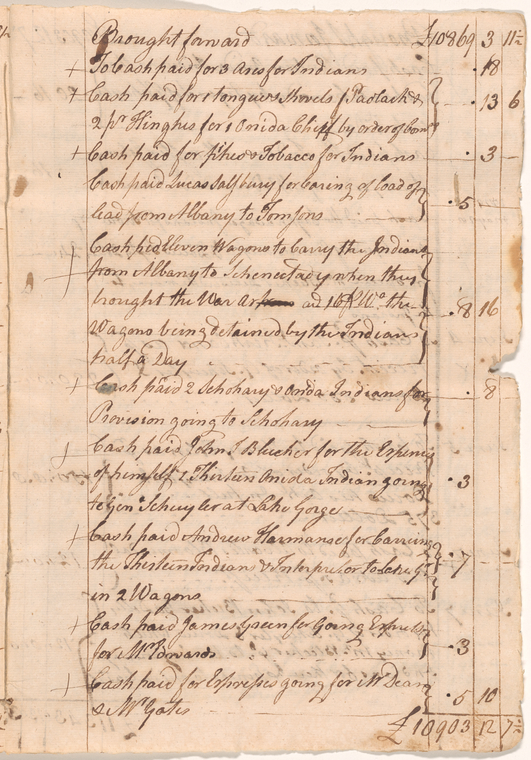 Brought forward £10869 3 11½
+ To Cash paid for 3 Axes for Indians - . 18
+ Cash paid for 1 tongues Shovels 1 Padlack &
2 pr Hinghes for 1 Onida Chief by order of Com - . 13 6
+ Cash paid for pipes & Tobacco for Indians - . 3 -
Cash paid Lucas Salsbury for Caring of Load of
lead from Albany to Tomsons . 5 -
Cash pied Eleven Wagons to Carry the Indians
+ from Albany to Schenectady when they
brought the War and 16/ the . 8 16
Wagons being detained by the Indians
half a Day
+ Cash paid 2 Schohary & Onida Indians for . 8
Provision going to Schohary
+ Cash paid John J Bleeker for the Expence
of himself & Thirteen Onida Indian going . 3
to Genl Schuyler at Lake Gorge
+ Cash paid Andrew Harmanse for Carring
the Thirteen Indians & Interpretor to Lake G . 7 -
in 2 Wagons
+ Cash paid James Green for Going Express
for Mr Edwards . 3
+ Cash paid for Expresses going for Mr Dean
& Mr Gates . 5 10
£10903 12 7½